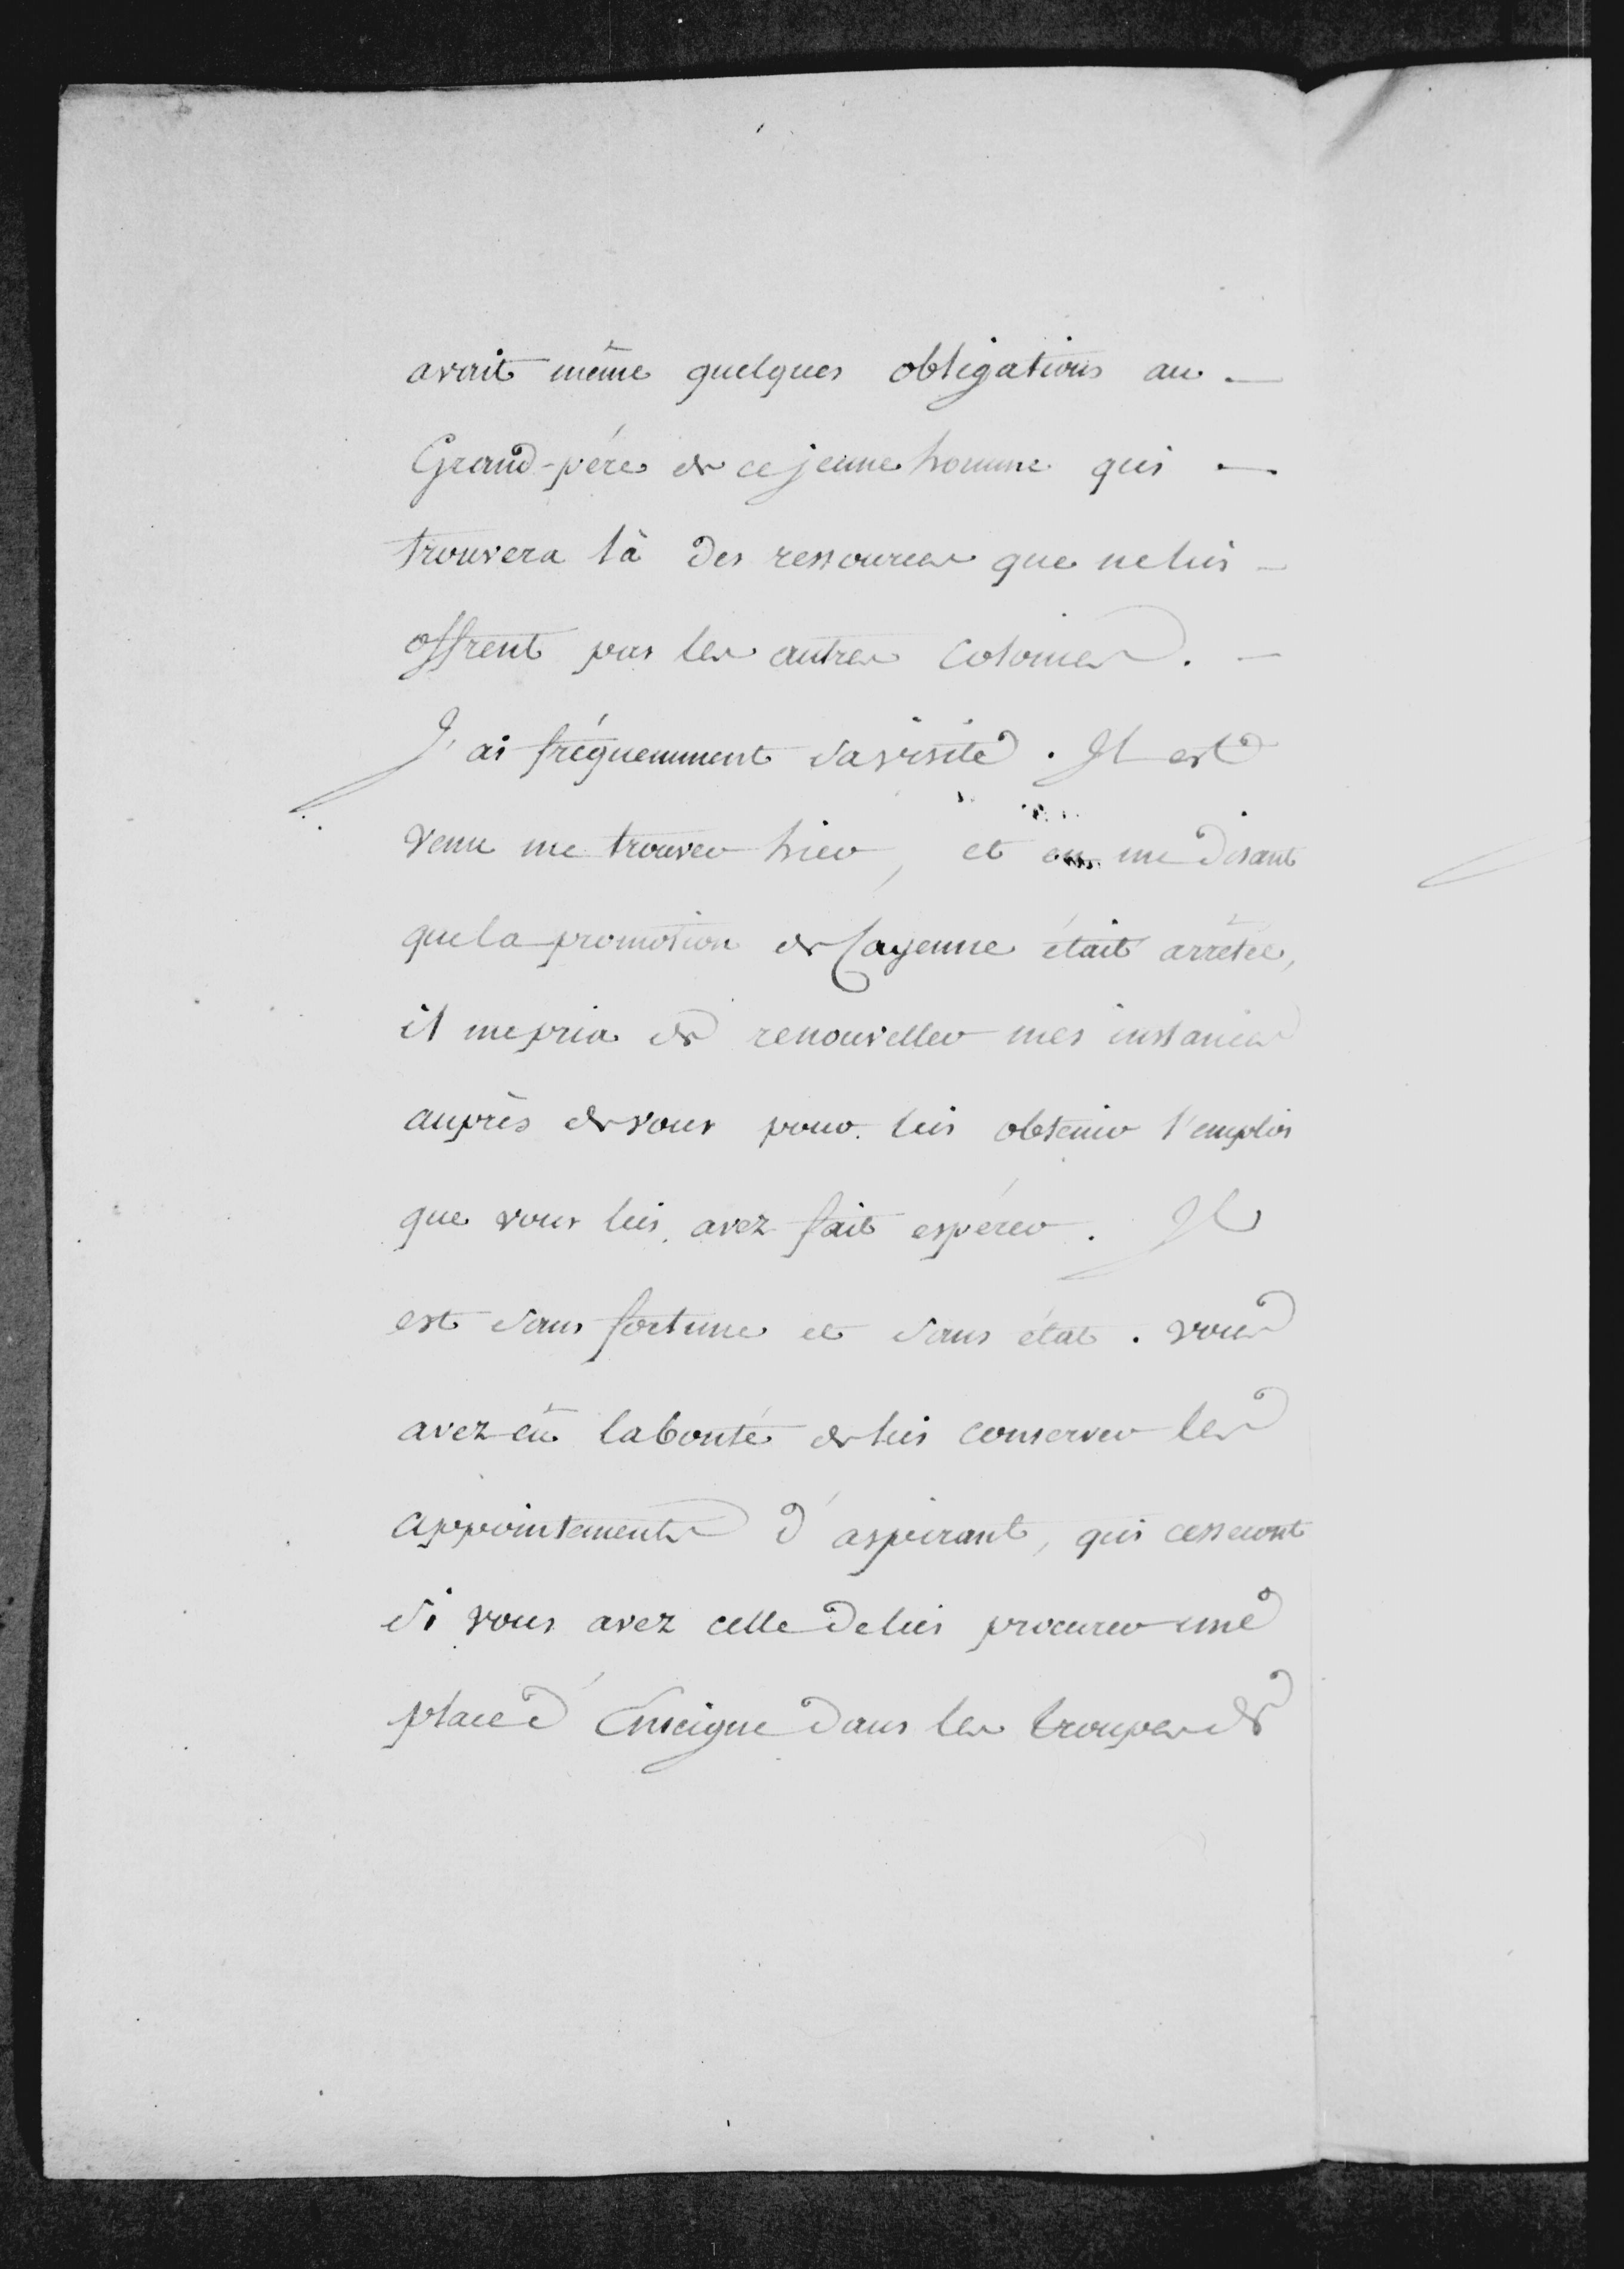 avait même quelques obligations au
Grand-pére de ce jeune homme qui
trouvera là des ressources que ne lui
offrent pas les autres Colonies.
J'ai fréquemment sa visite. Il est
venu me trouver hier, et en me disant
que la promotion de Cayenne était arrêtée,
il me pria de renouveller mes instances
auprès de vous pour lui obtenir l'emploi
que vous lui avez fait espérer. Il
est sans fortune et sans état. vous
avez eû la bonté de lui conserver les
appointements d'aspirant, qui cesseront
si vous avez celle de lui procurer une
place d'Enseigne dans les troupes de